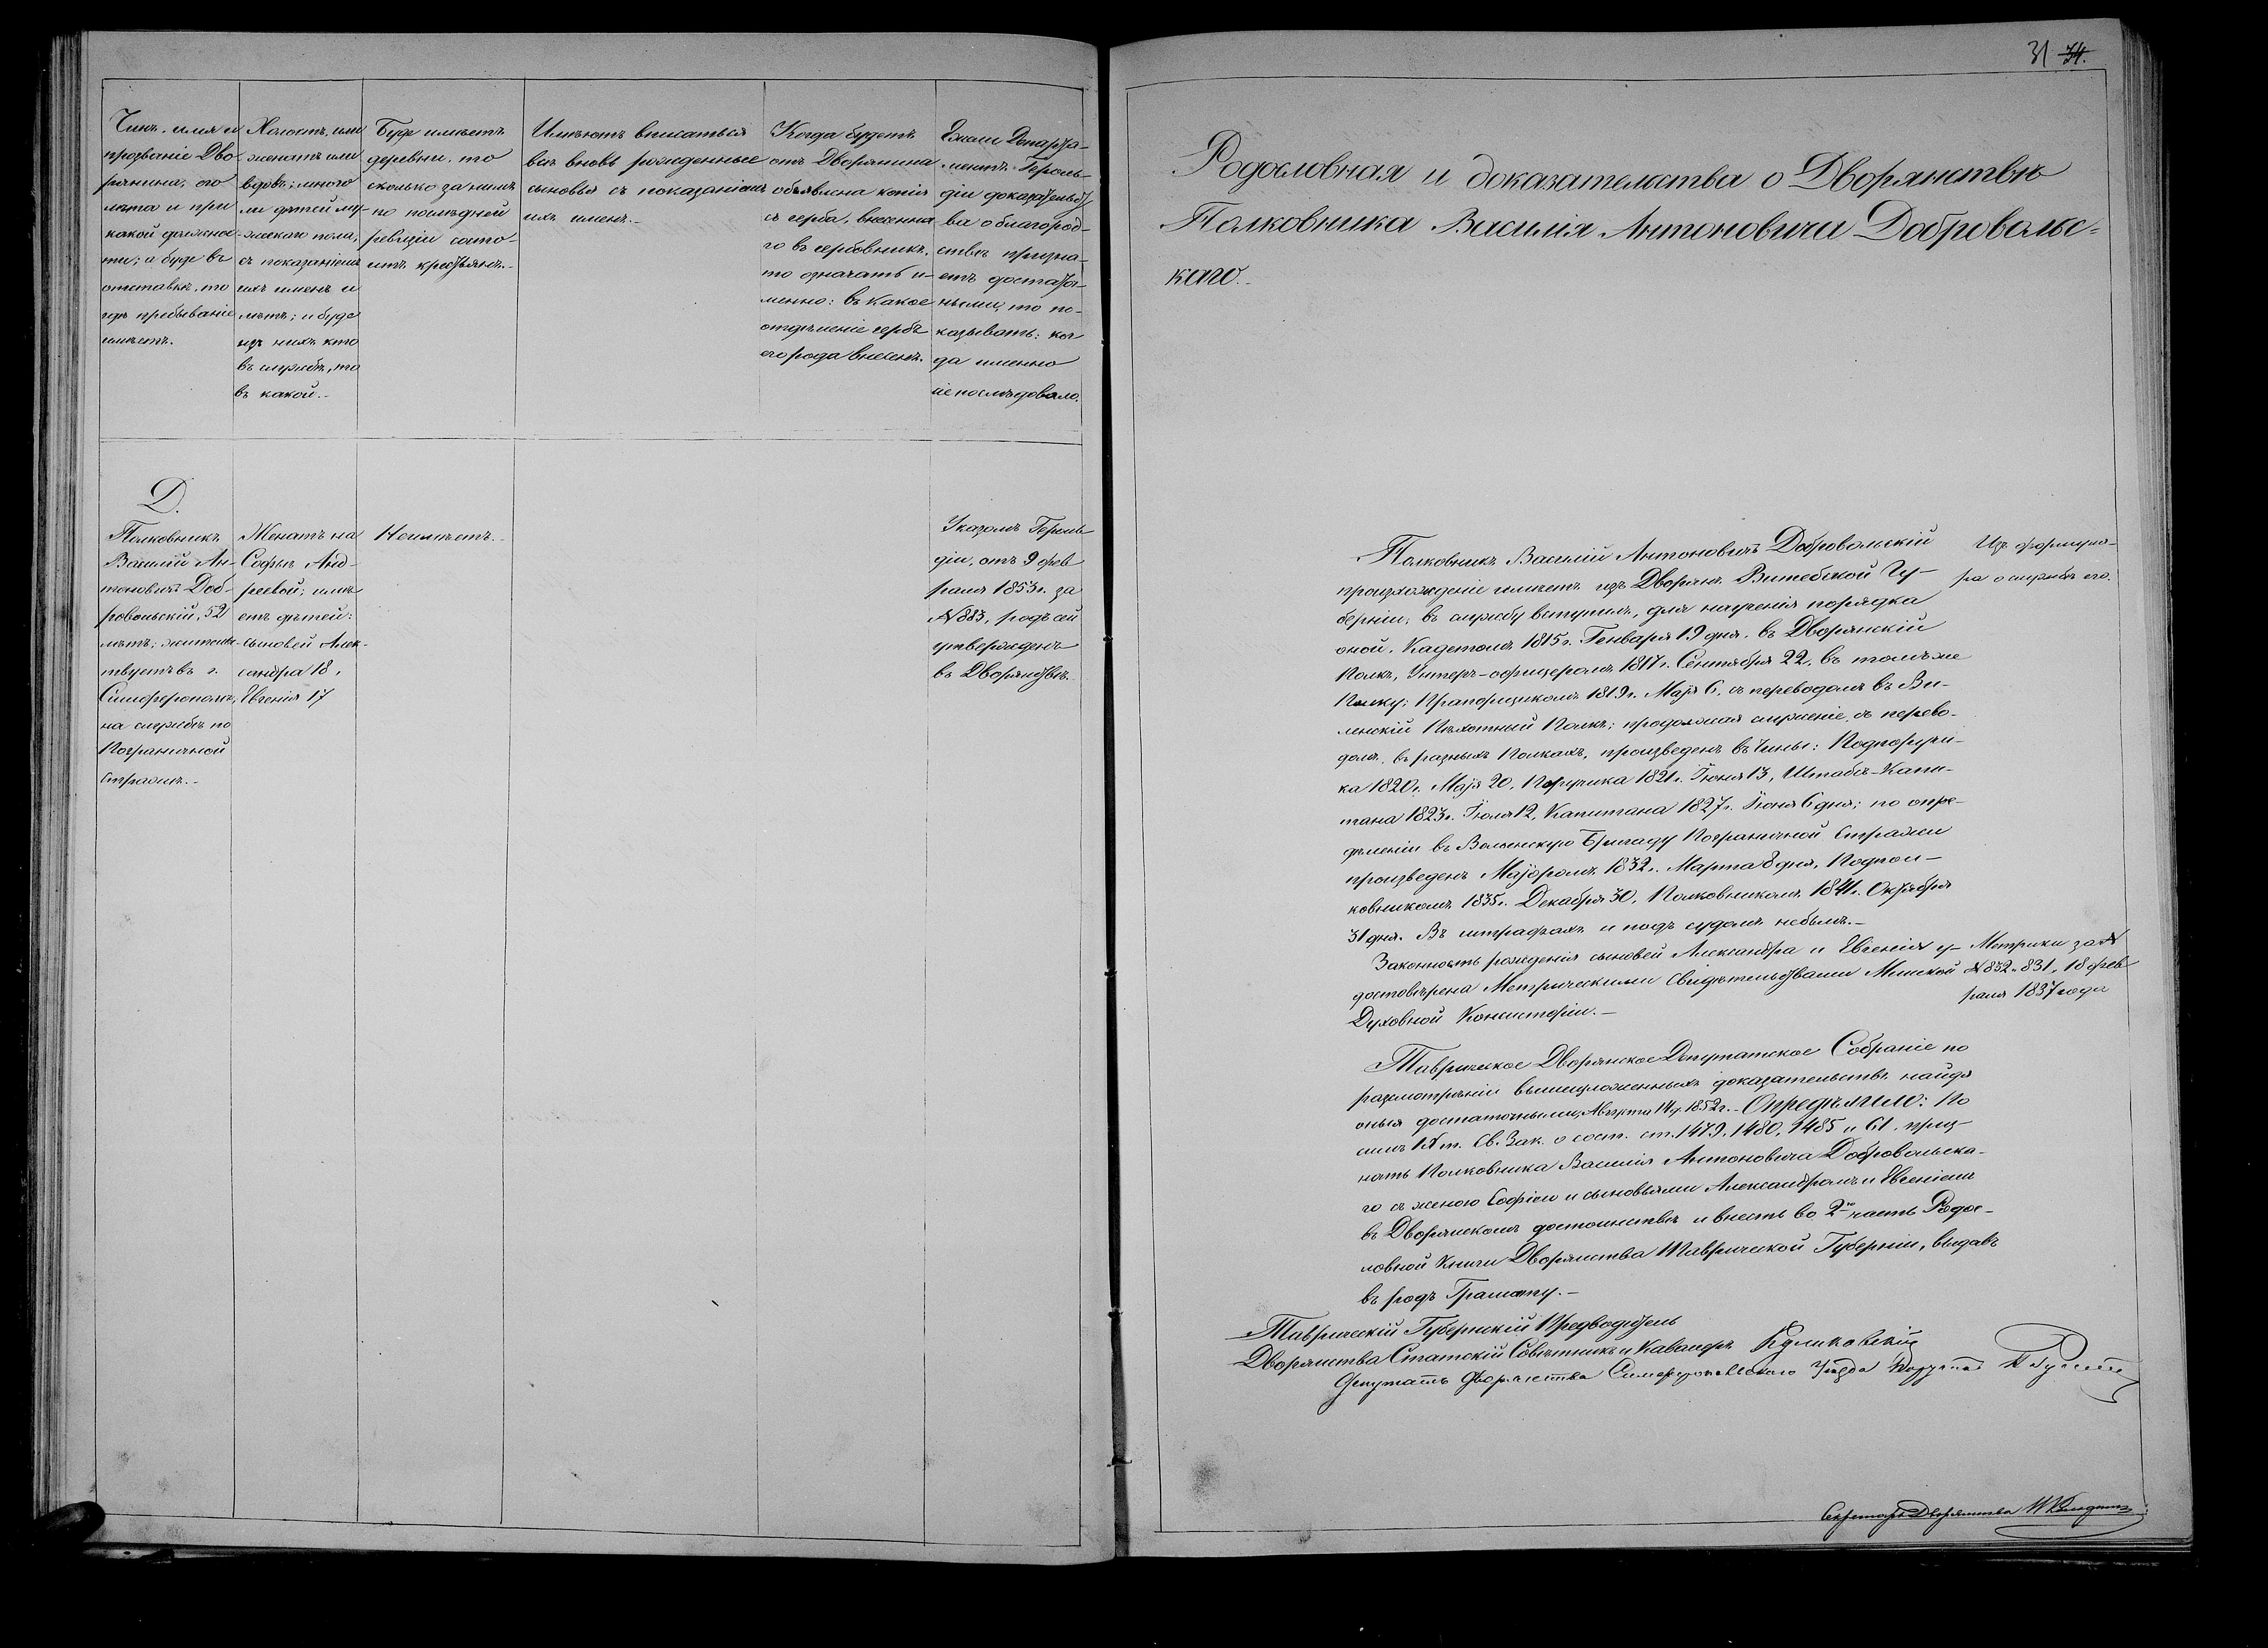 Чинъ, имя и
прозваніе Дво-
рянина, его
лѣта и при
какой должнос-
ти; а буде въ
отставкѣ, то
гдѣ пребываніе
имѣетъ.
Холостъ, или
женатъ или
вдовъ; много
ли дѣтей му-
жескаго пола,
съ показаніемъ
ихъ именъ и
лѣтъ; и буде
изъ нихъ кто
въ службѣ, то
въ какой.-
Буде имѣетъ
деревни, то
сколько за нимъ
по послѣдней
ревизіи состо-
итъ крестьянъ.-
Имѣютъ вписаться
всѣ вновь рожденные
сыновья съ показаніемъ
ихъ именъ.-
Когда будетъ
отъ Дворянина
объявлена копія
съ герба, внесенна-
го въ гербовникъ,
то означать и-
менно: въ какое
отдѣленіе гербъ
его рода внесенъ.
Ежели Департа-
ментъ Героль-
діи доказательст-
ва о благород-
ствѣ призна-
етъ достаточ-
ными, то по-
казывать: ког-
да именно
сіе послѣдовало.
Д.
Полковникъ
Василій Ан-
тоновичъ Доб-
ровольскій, 52
лѣтъ; жительс-
твуетъ въ г.
Симферополѣ,
на службѣ по
Пограничной
Стражѣ.-
Женатъ на
Софьѣ Анд-
реевой; имѣ-
етъ дѣтей:
сыновей Алек-
сандра 18,
Евгенія 17
Неимѣетъ.-
Указомъ Героль-
діи, отъ 9 фев-
раля 1853г. за
№ 883, родъ сей
утвержденъ
въ Дворянствѣ.
31 34.
Родословная и доказательства о Дворянствѣ
Полковника Василія Антоновича Добровольс-
каго.-
Полковникъ Василій Антоновичъ Добровольскій
происхожденіе имѣетъ изъ Дворянъ Витебской Гу-
берніи; въ службу вступилъ, для научения порядка
оной, Кадетомъ 1815г. Генваря 19 дня, въ Дворянскій
Полкъ, Унтеръ-офицеромъ 1817г. Сентября 22, въ томъ же
Полку; Прапорщикомъ 1819г. Маія 6, съ переводомъ въ Ви-
ленскій Пѣхотный Полкъ; продолжая служеніе, съ перево-
домъ, въ разныхъ Полкахъ, произведенъ въ Чины: Подпоручи-
ка 1820г. Маія 20, Поручика 1821г. Іюня 13, Штабсъ-Капи-
тана 1823г. Іюля 12, Капитана 1827г. Іюня 6 дня; по опре-
дѣленіи въ Волынскую Бригаду Пограничной Стражи
произведенъ Маіоромъ 1832г. Марта 8 дня, Подпол-
ковникомъ 1835г. Декабря 30, Полковникомъ 1841г. Октября
31 дня. Въ штрафахъ и подъ судомъ небылъ.-
Изъ формуля-
ра о службѣ его.
Законность рожденія сыновей Александра и Евгенія у-
достовѣрена Метрическими Свидѣтельствами Минской
Духовной Консисторіи.-
Метрики за №
№ 832 и 831, 18 фев-
раля 1837 года
Таврическое Дворянское Депутатское Собраніе по
разсмотрѣніи вышеизложенныхъ доказательствъ найдя
оныя достаточными, Августа 14 д. 1852г.- Опредѣлило: По
силѣ IX т. Св. Зак. о сост. ст. 1479, 1480, 1485 и 61. приз-
нать Полковника Василія Антоновича Добровольска-
го съ женою Софіею и сыновьями Александромъ и Евгеніемъ
въ Дворянскомъ достоинствѣ и внесть во 2ю часть Родос-
ловной Книги Дворянства Таврической Губерніи, выдавъ
въ родъ Грамоту.-
Таврическій Губернскій Предводитель
Дворянства Статскій Совѣтникъ и Кавалеръ Куликовскій
Депутатъ Дворянства Симферопольского Уѣзда Поручикъ
Секретарь Дворянства